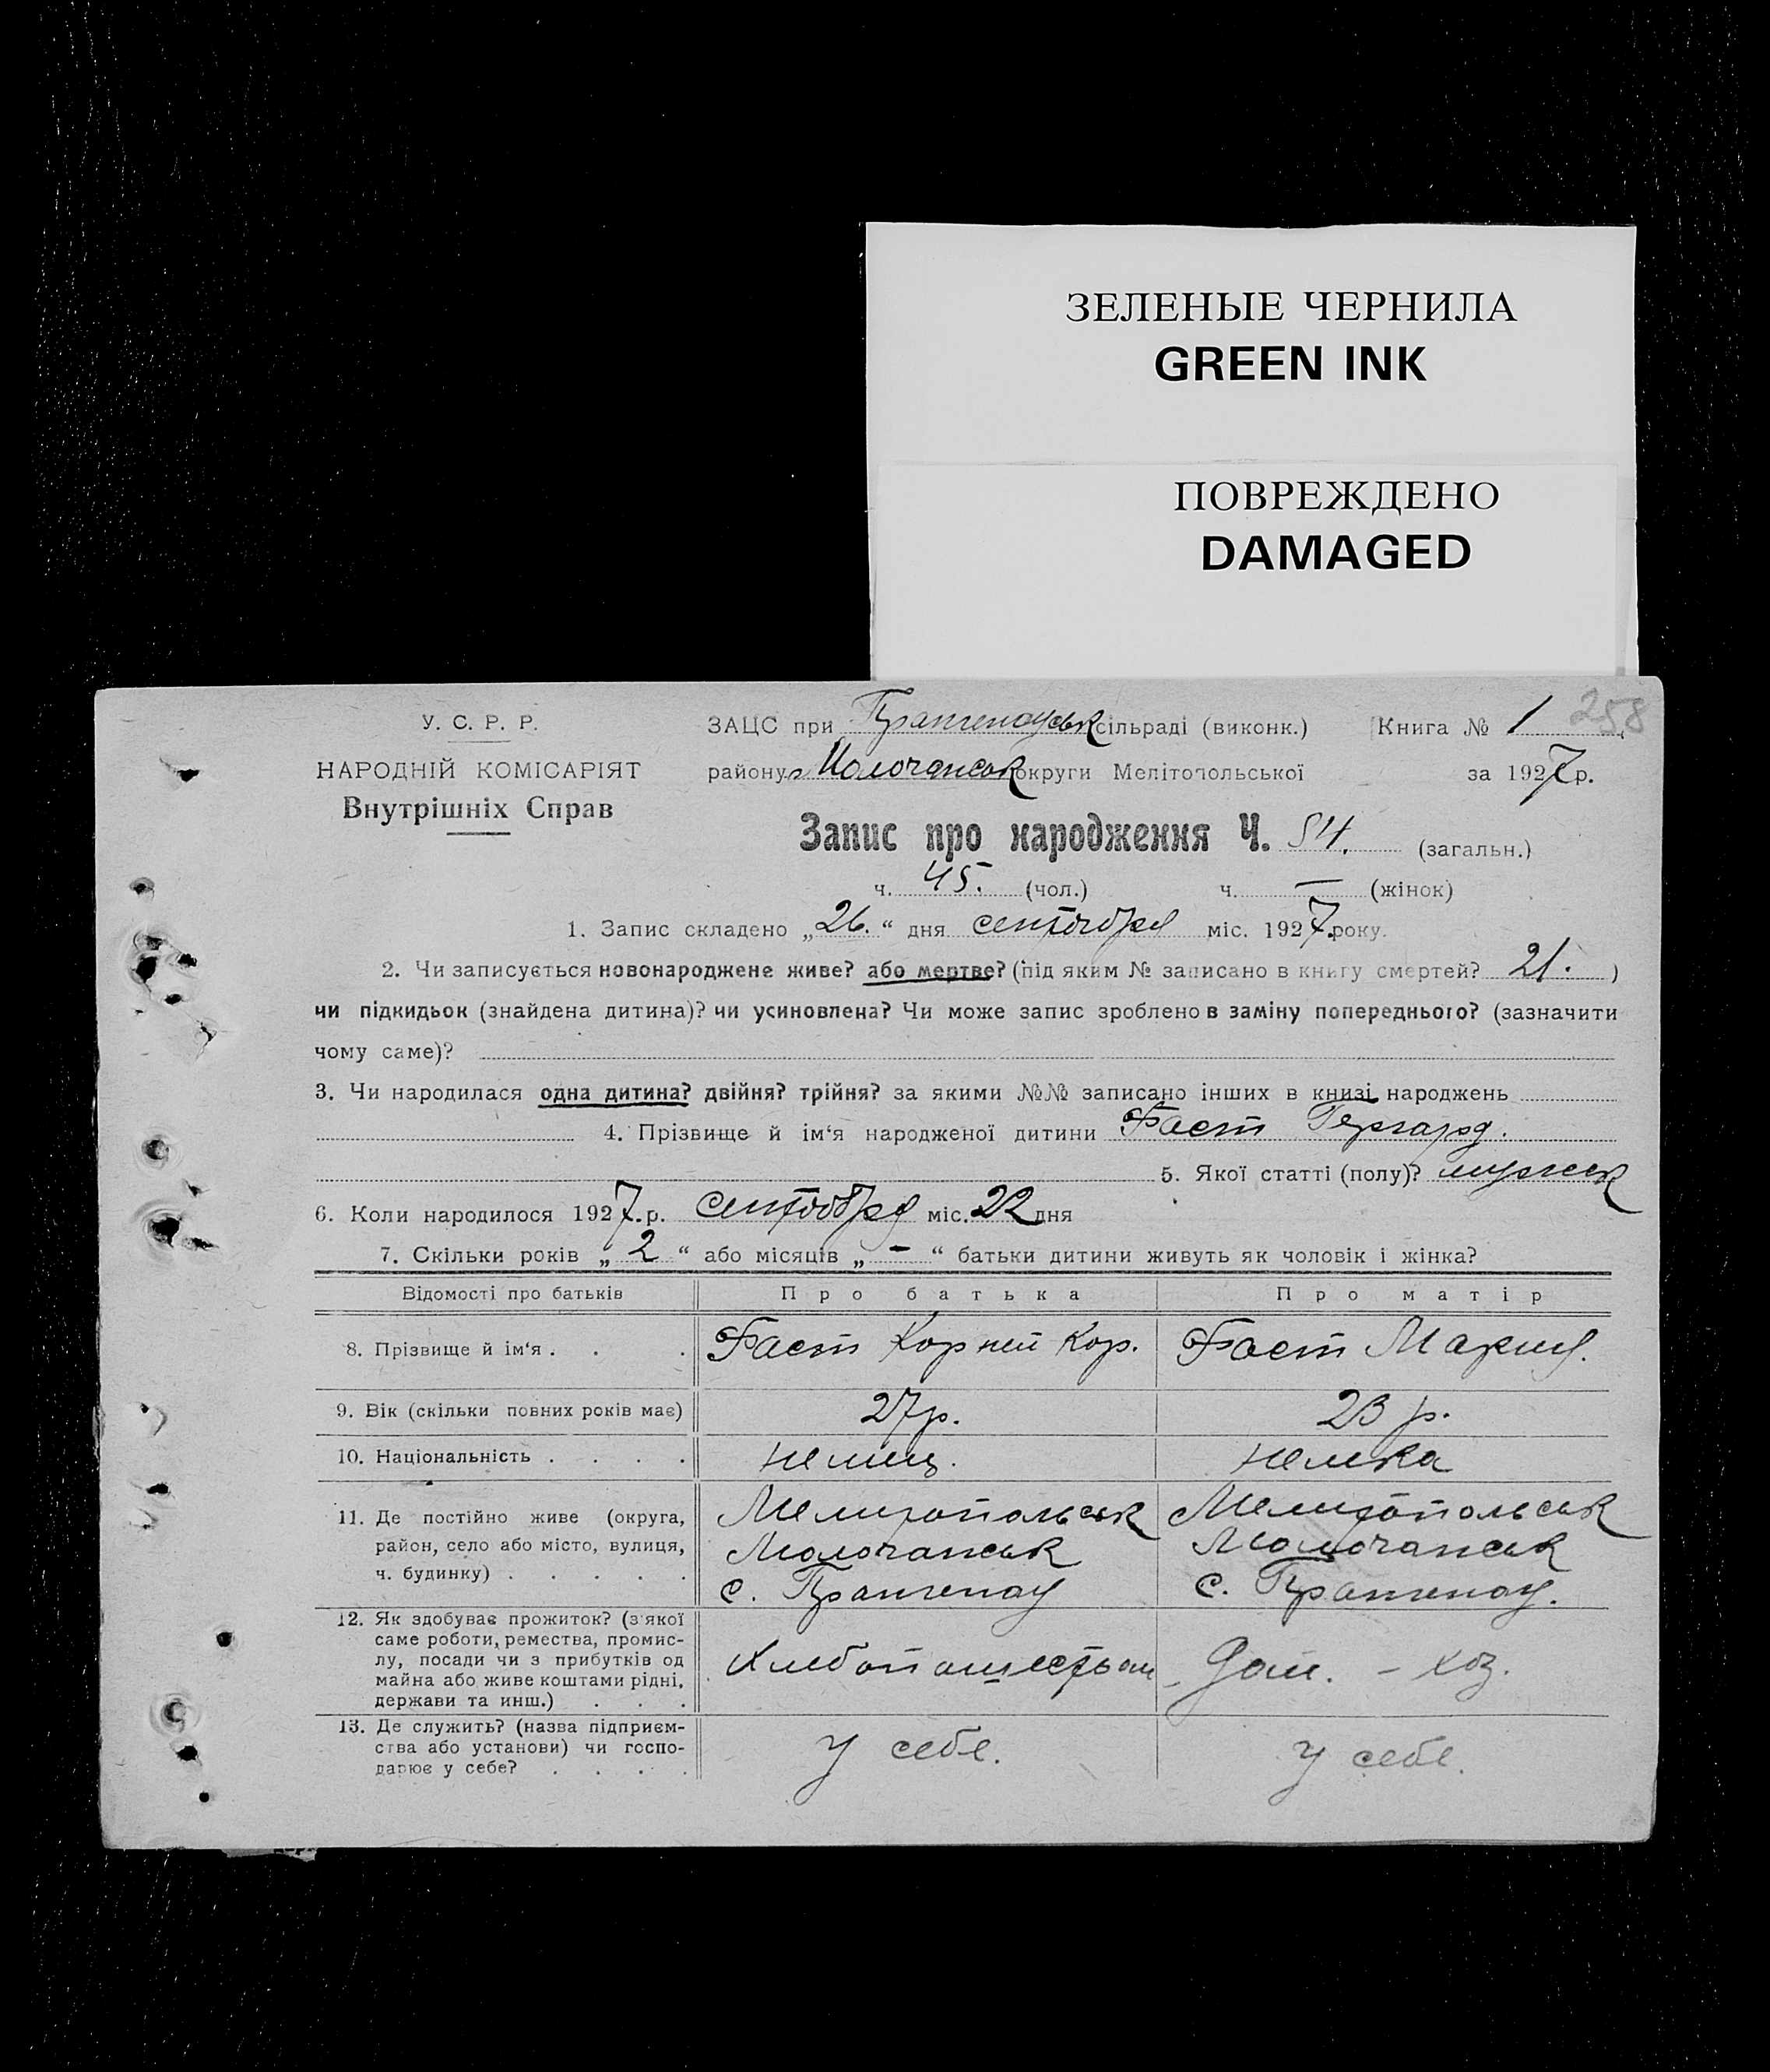 ЗЕЛЕНЫЕ ЧЕРНИЛА
GREEN INK
ПОВРЕЖДЕНО
DAMAGED
258
У. С. Р. Р.
НАРОДНІЙ КОМІСАРІЯТ
Внутрішніх Справ
ЗАЦС при Прангенауськ сільраді (виконк.) Книга № 1
району Молочанськ округи Мелітопольської за 1927 р.
Запис про народження Ч. 54. (загальн.)
ч. 45. (чол.) ч. — (жінок)
1. Запис складено „26.“ дня сентября міс. 1927. року.
2. Чи записується новонароджене живе? або мертве? (під яким № записано в книгу смертей? 21. )
чи підкидьок (знайдена дитина)? чи усиновлена? Чи може запис зроблено в заміну попереднього? (зазначити
чому саме)?
3. Чи народилася одна дитина? двійня? трійня? за якими №№ записано інших в книзі народжень
4. Прізвище й ім‘я народженої дитини Фаст Гергард.
5. Якої статті (полу)? мужск
6. Коли народилося 1927. р. сентября міс. 22 дня
7. Скільки років „2“ або місяців „—“ батьки дитини живуть як чоловік і жінка?
Відомості про батьків Про батька Про матір
8. Прізвище й ім‘я . . . Фаст Корней Кор. Фаст Мария.
9. Вік (скільки повних років має) 27 р. 23 р.
10. Національність . . . . немец. немка
11. Де постійно живе (округа, район, село або місто, вулиця, ч. будинку) . . . . .
Мелитопольськ Мелитопольськ
Молочанськ Молочанськ
с. Прангенау с. Прангенау.
12. Як здобуває прожиток? (з якої
саме роботи, ремества, промис-
лу, посади чи з прибутків од
майна або живе коштами рідні,
держави та инш.) . . .
Дом. – хоз.
13. Де служить? (назва підприєм-
ства або установи) чи госпо-
дарює у себе? . . . .
у себе. у себе.